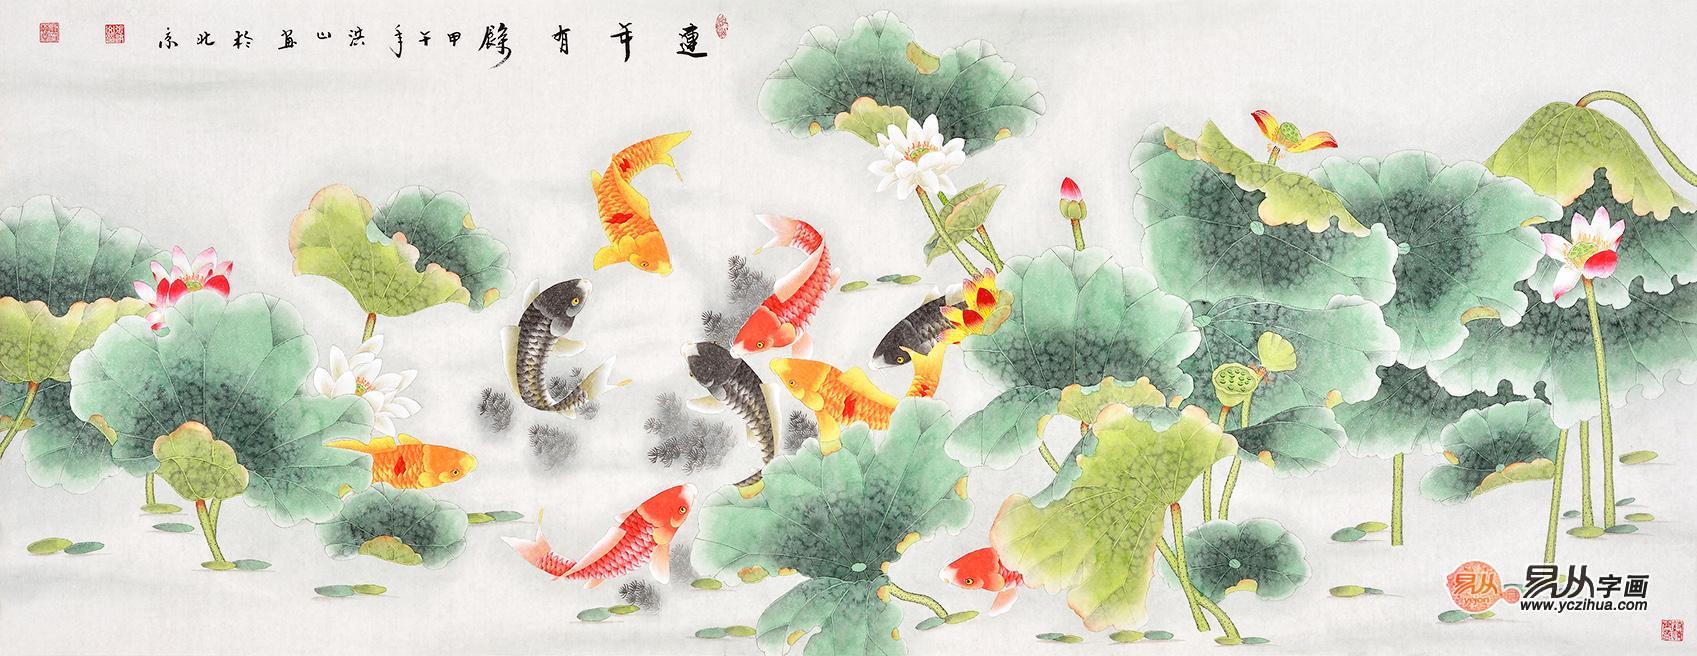 蓮年有餘 甲午年 洪山畫於北京
易从
易从字画
www.yczihua.com